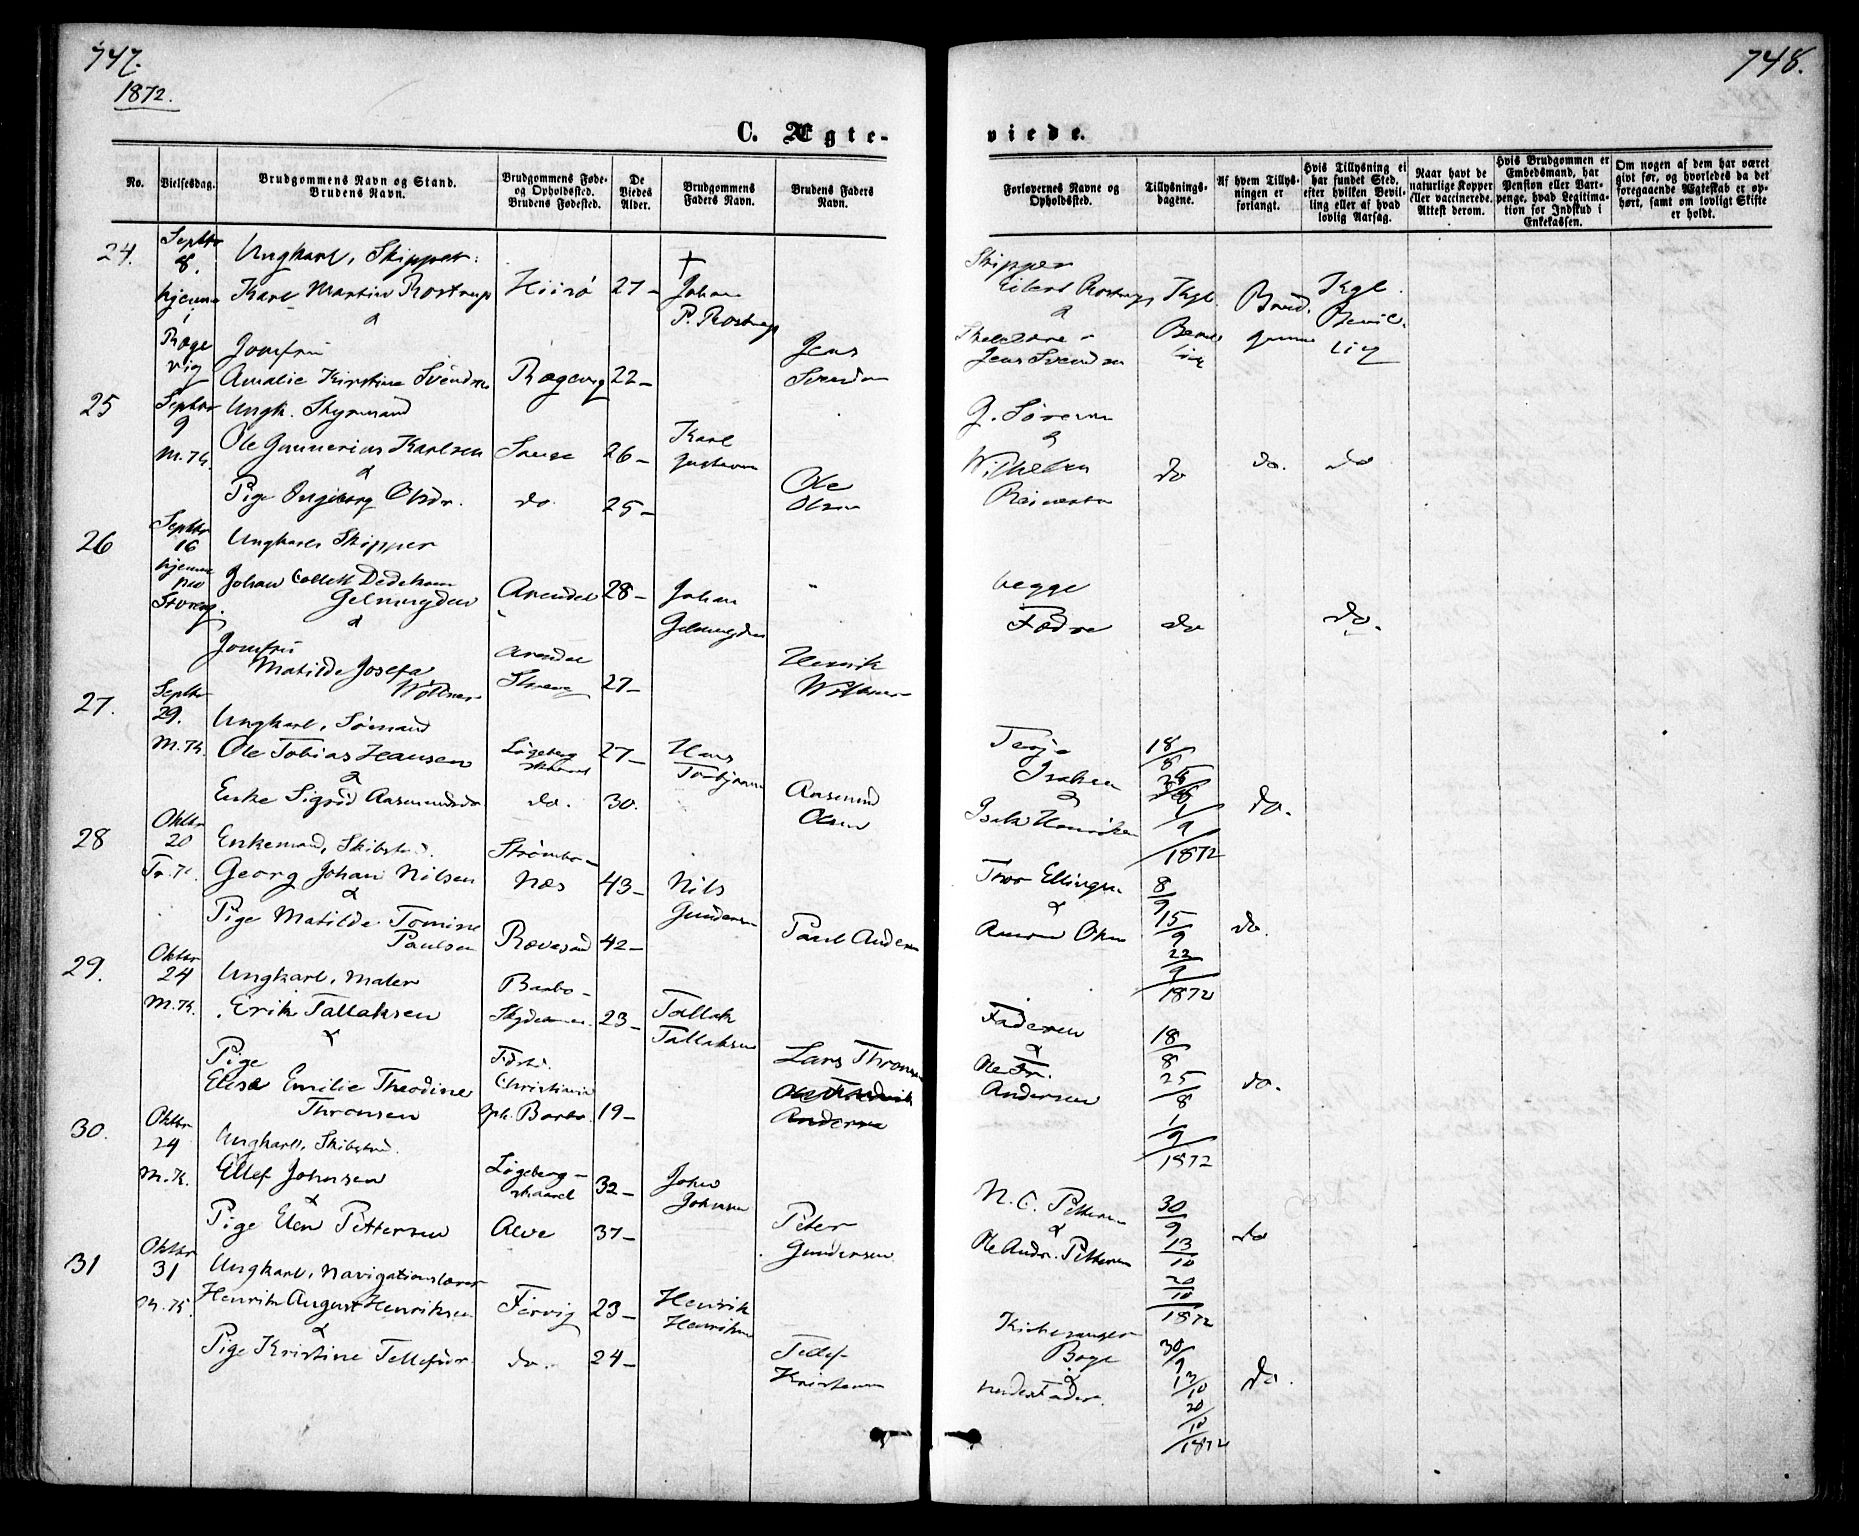 747.
1872.
C. Ægte-
No.
Vielsesdag.
Brudgommens Navn og Stand.
Brudens Navn.
Brudgommens Føde-
og Opholdssted.
Brudens Fødested.
De
Viedes
Alder.
Brudgommens
Faders Navn.
Brudens Faders
Navn.
24.
Septbr
8.
hjemme
i
Ungkarl, Skipper
Karl Martin Rostrup
Hiisø
27 -
†
Johan
P. Rostrup
&
Jomfru
Amalie Kirstine Svendsen
Rægevig
22 -
Jens
Svendsen
25
Septbr
9
M. K.
Ungk. Styrmand
Ole Gunnerius Karlsen
26 -
Karl
&
Pige Ingeborg Olsdr.
do.
25 -
Ole
Olsen
26
Septbr
16
hjemme
Ungkarl Skipper
Johan Collett Dedekam
Arendal
28 -
Johan
&
Jomfru
Matilde Josefa
Arendal
27 -
Henrik
27.
Septbr
29.
M. K.
Ungkarl, Sømand
Ole Tobias Hansen
27 -
Hans
Torbjørnsen
&
Enke Sigrid Aasmundsdr
do.
30.
Aasmund
Olsen
28
Oktbr
20
Tr. K.
Enkemand, Skibstød.
Georg Johan Nilsen
Strømbo-
næs
43 -
Nils
Gundersen
&
Pige Matilde Tomine
Paulsen
Rævesand
42 -
Paul Andersen
29.
Oktbr
24
M. K.
Ungkarl, Maler
Erik Tallaksen
Barbo -
23 -
Tallak
Tallaksen
&
Pige
Elise Emilie Theodine
Thronsen
Fødsb.
Christiania
Oph. Barbo
19 -
Lars Thronsen
Ole Fredrik
Andersen
30.
Oktbr
24
M. K.
Ungkarl, Skibstød.
Ellef Johnsen
Løgeberg -
skaaret
32 -
John
Johnsen
&
Pige Elen Pettersen
Alve
37 -
Peter
Gundersen
31
Oktbr
31
M. K.
Ungkarl, Navigationslærer
Henrik August Henriksen
Færvig
23 -
Henrik
Henriksen
&
Pige Kristine Tellefsdr.
do.
24 -
Tellef
Kristensen
748.
viede.
Forlovernes Navne og
Opholdssted.
Tillysnings-
dagene.
Af hvem Tillys-
ningen er
forlangt.
Hvis Tillysning ei
har fundet Sted,
efter hvilken Bevil-
ling eller af hvad
lovlig Aarsag.
Naar havt de
naturlige Kopper
eller vaccinerede.
Attest derom.
Hvis Brudgommen er
Embedsmand, har
Pension eller Vart-
penge, hvad Legitima-
tion for Indskud i
Enkekassen.
Om nogen af dem har været
givt før, og hvorledes da det
foregaaende Ægteskab er op-
hørt, samt om lovligt Skifte
er holdt.
Skipper
Eilert Rostrup
&
Jens Svendsen
Kgl.
Bevil-
ling
Brud-
gommen
Kgl.
Bevil-
ling
&
do
do.
do
begge
Fædre
do
do.
Terje
Isaksen
&
Isak Henriksen
18/8
1/9
1872
do.
Thor Ellingsen
&
8/9
15/9
22/9
1872
do.
Faderen
&
Ole Fr.
Andersen
18/8
25/8
1/9
1872
do.
N. C. Pettersen
&
Ole Andr. Pettersen
30/9
13/10
20/10
1872
do
Kirkesanger
Boye
&
30/9
13/10
20/10
1872
do.